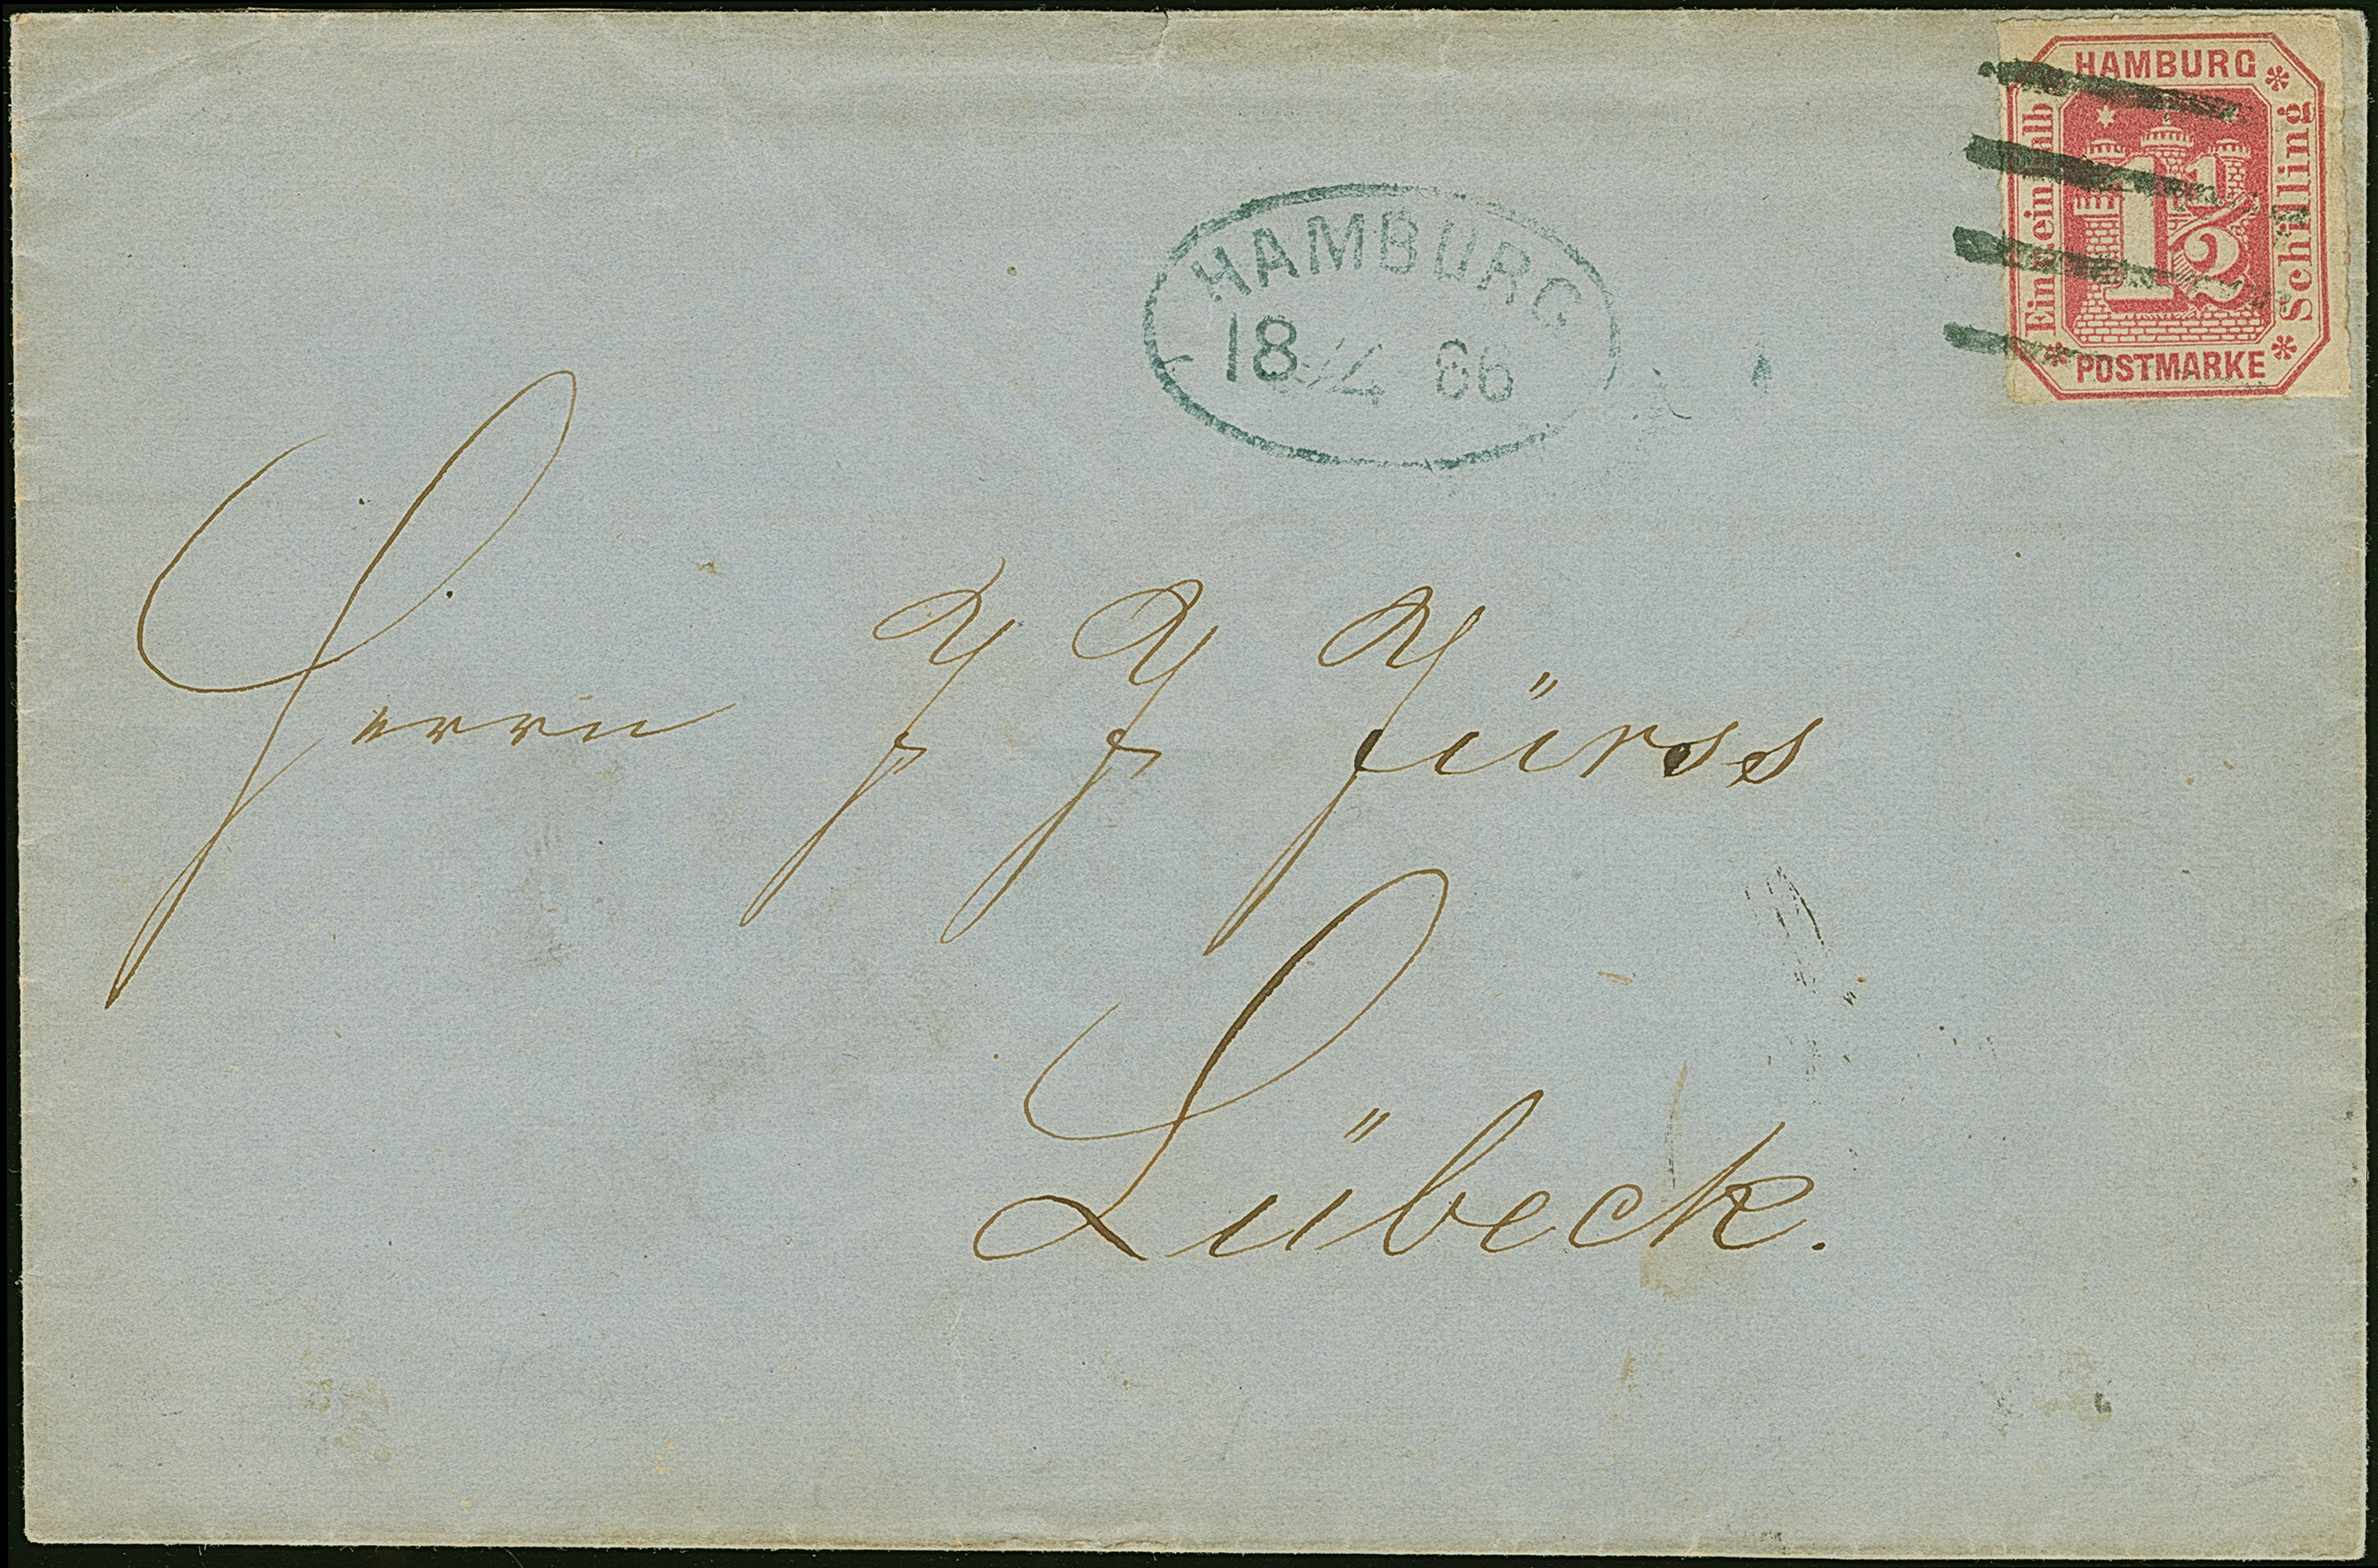 HAMBURG
Ein ein halb
1 1/2
Schilling
POSTMARKE
HAMBURG
18 66
Herrn J J Jürss
Lübeck.